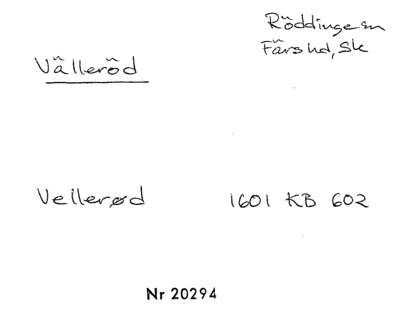 Röddinge sn
Färs hd, Sk
Välleröd
Vellerød 1601 KB 602
Nr 20294